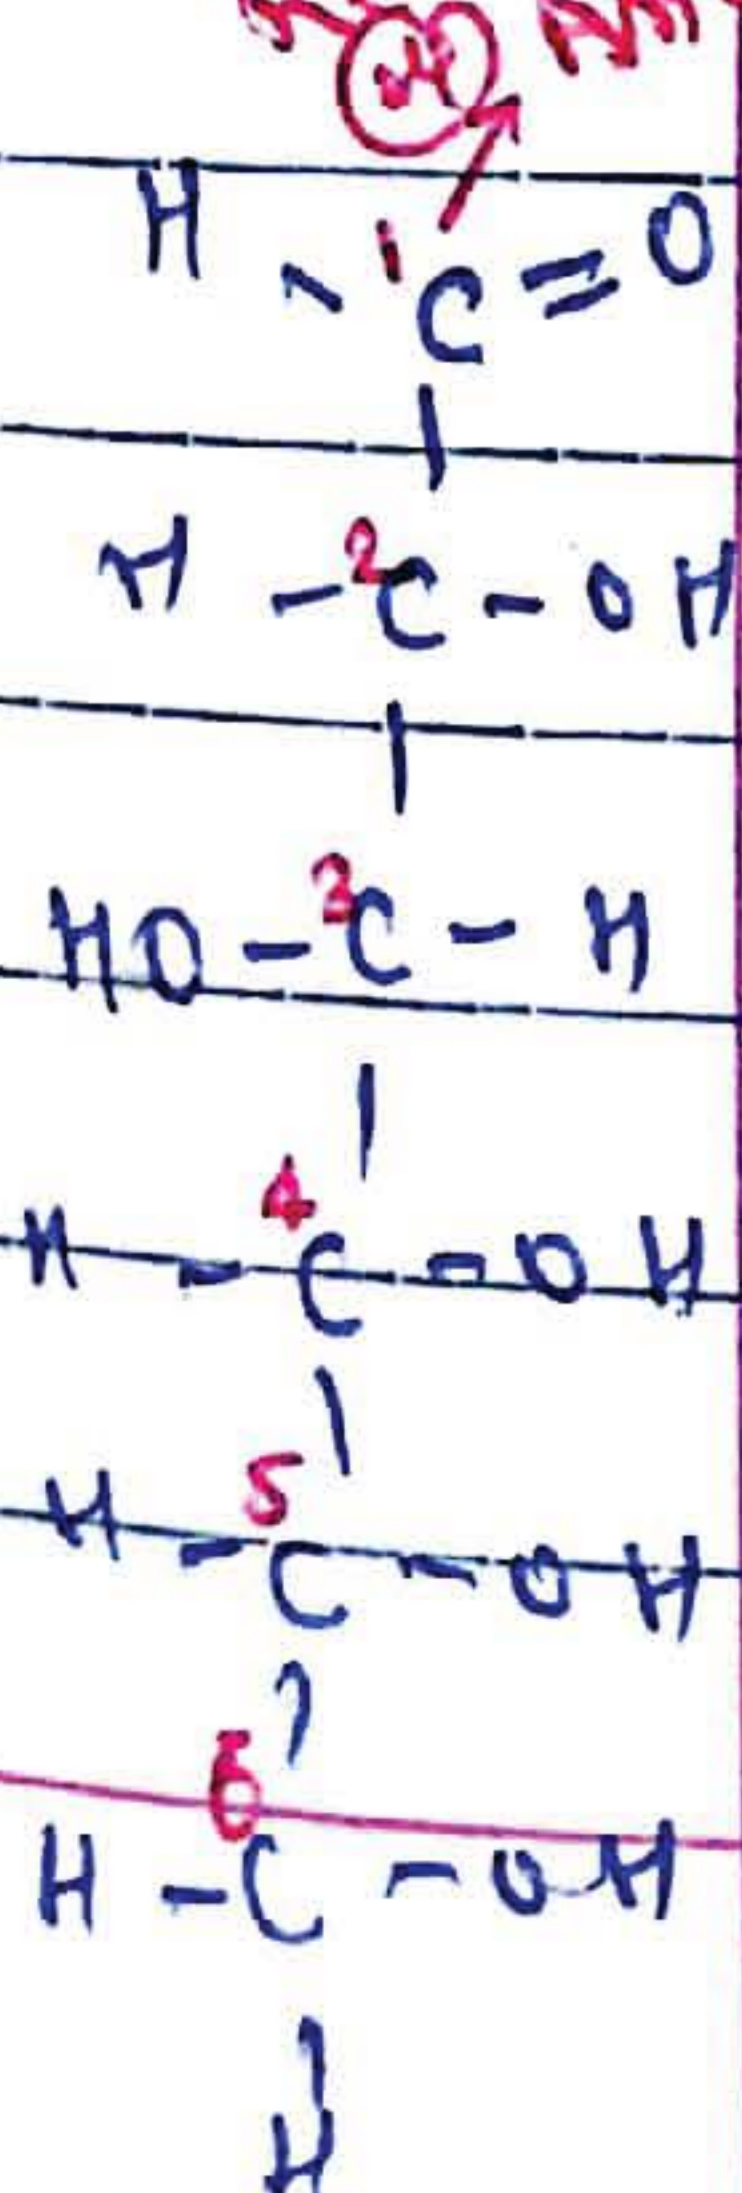 H - 1C = O
|
H - 2C - OH
|
HO - 3C - H
|
4
H - C - OH
|
5
H - C - OH
|
6
H - C - OH
|
H